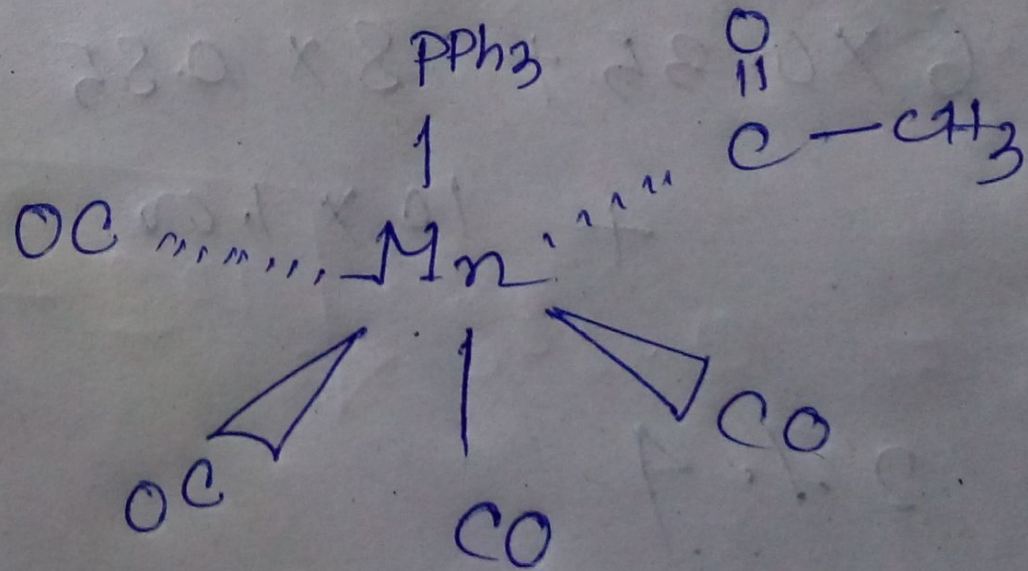 PPh3
O
C — CH3
OC
Mn
OC
CO
CO